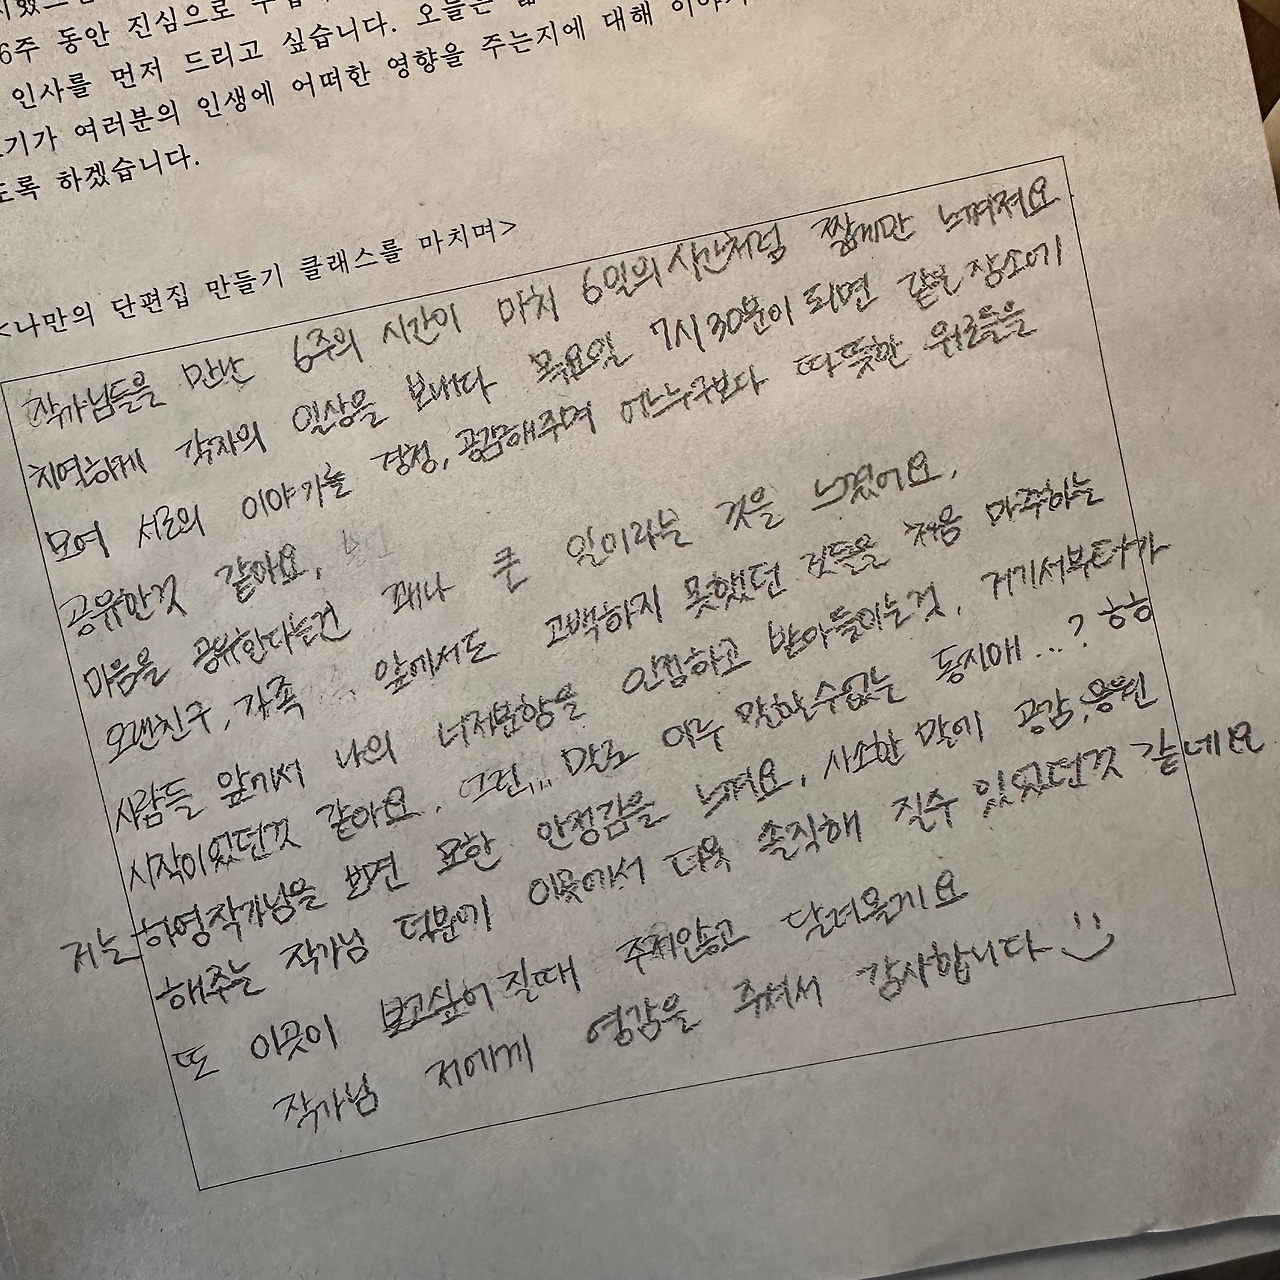 6주 동안 진심으로
인사를 먼저 드리고 싶습니다. 오늘은
기가 여러분의 인생에 어떠한 영향을 주는지에 대해
도록 하겠습니다.
<나만의 단편집 만들기 클래스를 마치며>
작가님들을 만난 6주의 시간이 마치 6일의 시간처럼 짧게만 느껴져요
치열하게 각자의 일상을 보내다 목요일 7시 30분이 되면 같은 장소에
모여 서로의 이야기를 경청, 공감해주며 어느누구보다 따뜻한 위로들을
공유한것 같아요.
마음을 공유한다는건 꽤나 큰 일이라는 것을 느꼈어요.
오랜친구, 가족 앞에서도 고백하지 못했던 것들을 처음 마주하는
사람들 앞에서 나의 너저분함을 인정하고 받아들이는것, 거기서부터가
시작이었던것 같아요. 그런... 말로 이루 말할수없는 동지애...? ㅎㅎ
저는 하영작가님을 보면 묘한 안정감을 느껴요, 사소한 말에 공감,응원
해주는 작가님 덕분에 이곳에서 더욱 솔직해 질수 있었던것 같네요
또 이곳이 보고싶어 질때 주저않고 달려올게요
작가님 저에게 영감을 주셔서 감사합니다 :)